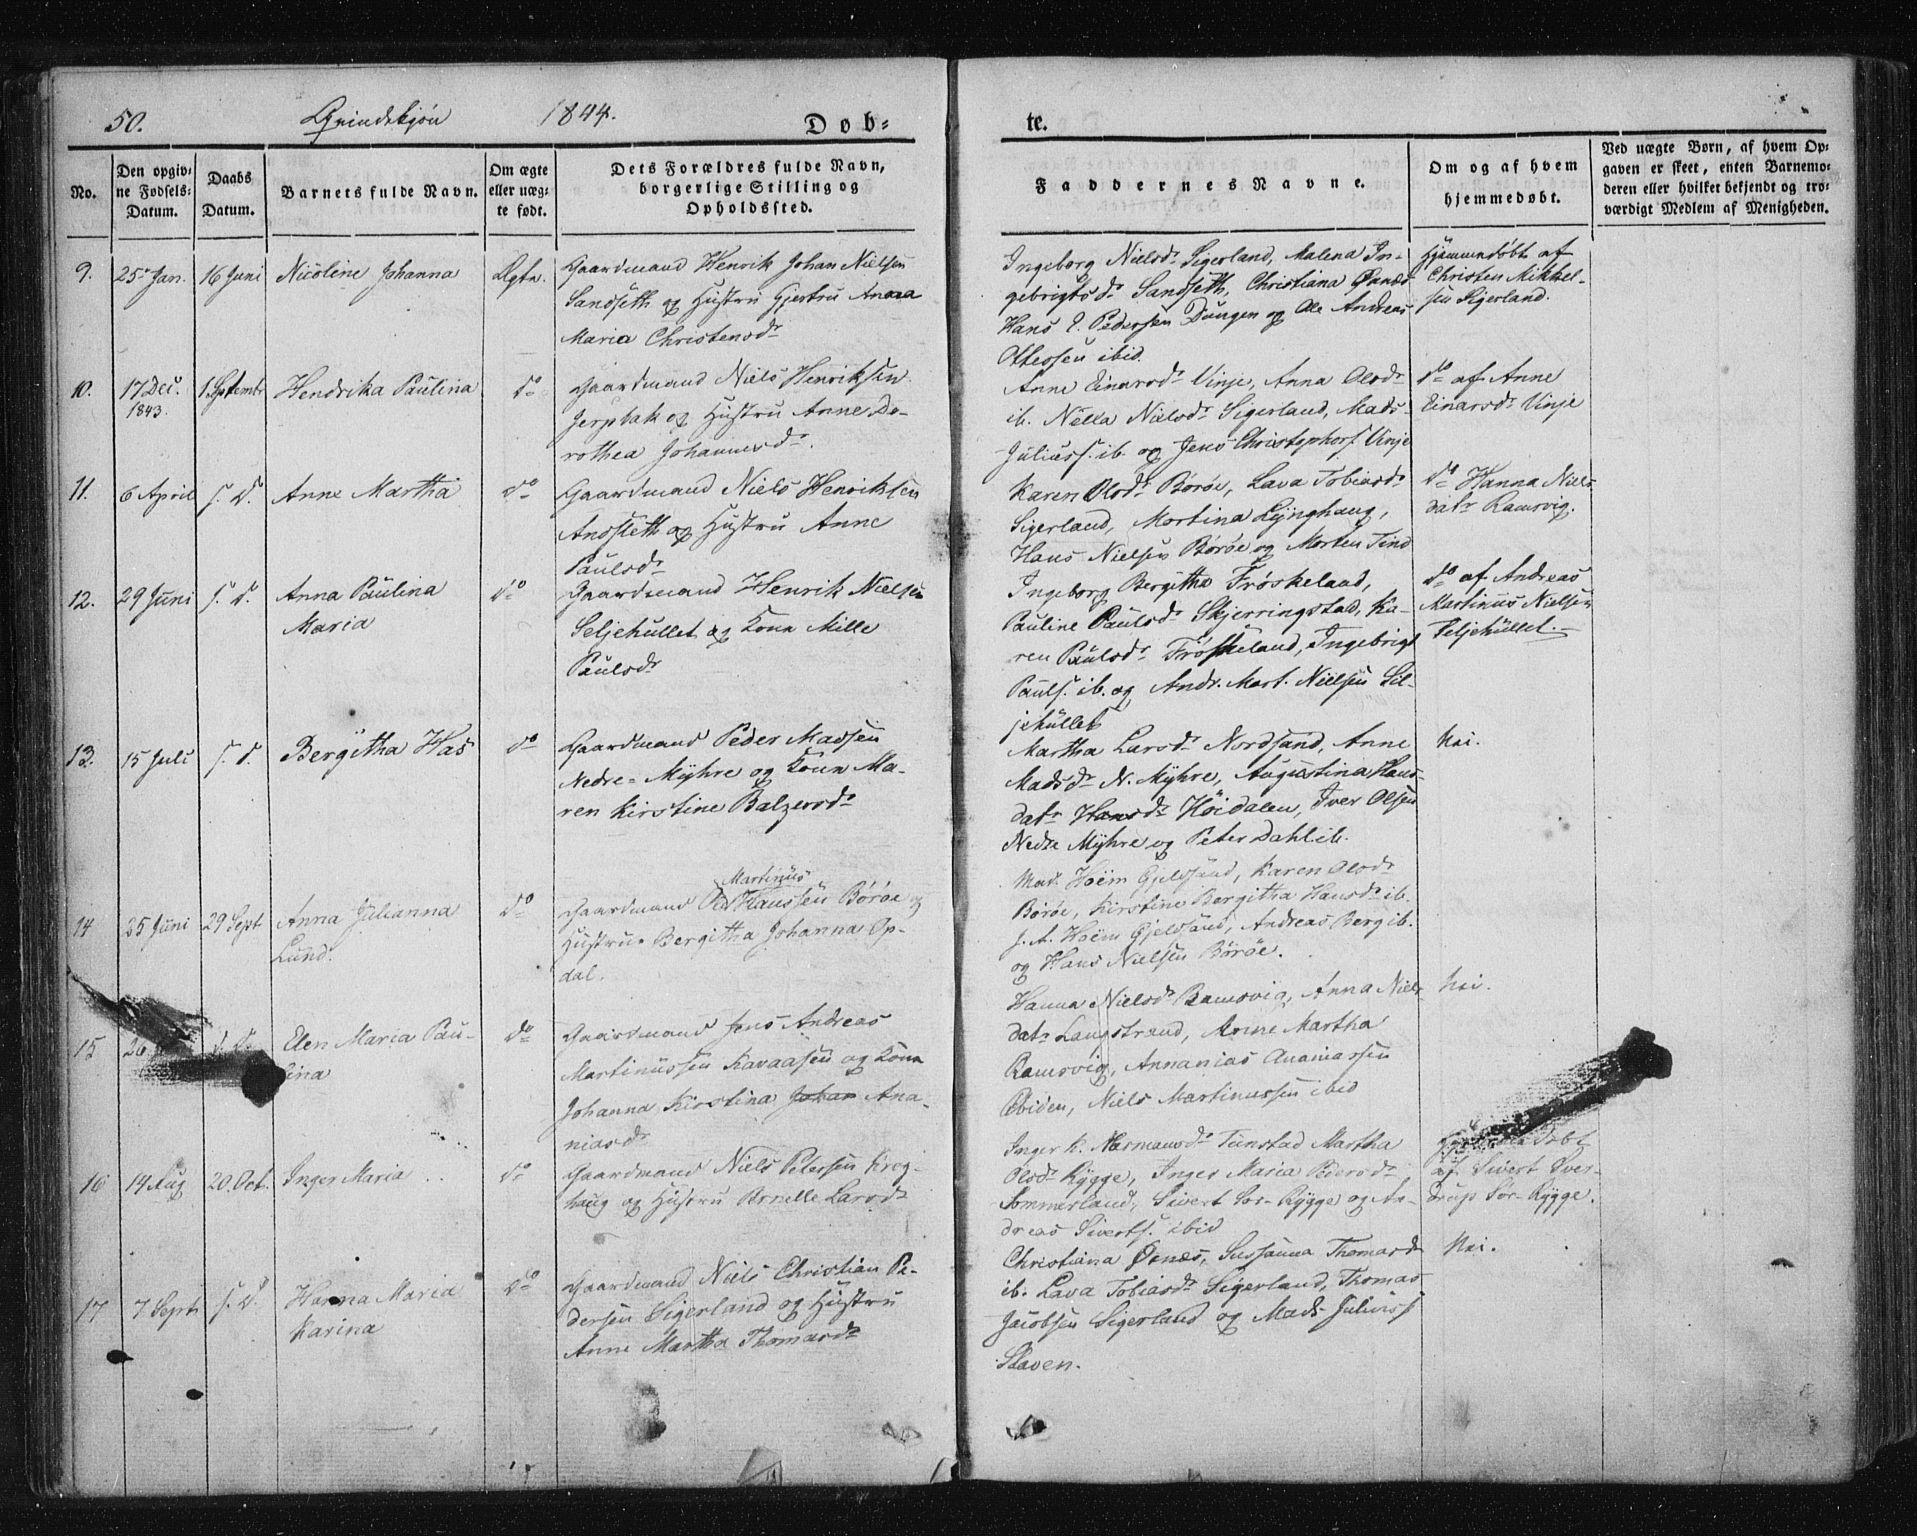 50. Qvindekjøn 1844. Døb-
te.
No.
Den opgiv-
ne Fødsels-
Datum.
Daabs
Datum.
Barnets fulde Navn.
Om ægte
eller uæg-
te født.
Dets Forældres fulde Navn,
borgerlige Stilling og
Opholdssted.
Faddernes Navne.
Om og af hvem
hjemmedøbt.
Ved uægte Børn, af hvem Op-
gaven er skeet, enten Barnemo-
deren eller hvilket bekjendt og tro-
værdigt Medlem af Menigheden.
9. 25 Jan. 16 Juni Nicoline Johanna Ægte.
Gaardmand Henrik Johan Nielsen
Sandseth og Hustru Gjertru Anna
Maria Christensdr
Ingeborg Nielsdr Sigerland, Malena In-
gebrigtsdr Sandseth, Christiana Osnæs
Hans E. Pedersen Dungen og Ole Andreas
Ottessen ibid.
Hjemmedøbt af
Christen Mikkel-
sen Sigerland.
10. 17 Dec.
1843.
1 Septembr Hendrika Paulina do
Gaardmand Niels Henriksen
Jerpbak og Hustru Anne Do-
rothea Johannesdr.
Anne Einarsdr Vinje, Anna Olsdr
ib. Nella Nielsdr Sigerland, Mads
Juliuss. ib. og Jens Christophors. Vinje
do af Anne
Einarsdr Vinje
11. 6 April s. D. Anne Martha do
Gaardmand Niels Henriksen
Andsleth og Hustru Anne
Paulsdr
Karen Olsdr Børøe, Lava Tobiasdr
Sigerland, Mortina Lynghaug,
Hans Nielsen Børøe og Morten Tind
do Hanna Niels
datr Ramsvig.
12. 29 Juni s. D. Anna Paulina
Maria
do
Gaardmand Henrik Nielsen
Seljehullet og Kone Mille
Paulsdr
Ingeborg Bergitha Frøskeland,
Pauline Paulsdr Skjerringstad, Ka-
ren Paulsdr Frøskeland, Ingebrigt
Pauls. ib. og Andr. Mart. Nielsen Sel-
jehullet
do af Andreas
Martinus Nielsen
Seljehullet.
13. 15 Juli s. d. Bergitha Has do
Gaardmand Peder Madsen
Nedre-Myhre og Kone Ma-
ren Kirstine Balzersdr
Martha Larsdr Nordsand, Anne
Madsdr N. Myhre, Augustina Hans-
datr Hansdr Høidalen, Iver Olsen
Nedre Myhre og Peter Dahl ib.
Nei.
14 25 Juni 29 Sept Anna Julianna
Lund.
do
Martinus
Gaardmand Ped Hanssen Børøe og
Hustru Bergitha Johanna Op-
dal.
Mad. Hoëm Gjelsand, Karen Olsdr
Børøe, Kirstine Bergitha Hansdr ib.
J. A. Hoëm Gjelsand, Andreas Berg ib.
og Hans Nielsen Børøe.
15 26 s. D. Elen Maria Pau-
lina
do
Gaardmand Jens Andreas
Martinussen Kavaasen og Kone
Johanna Kirstina Johan Ana-
niasdr
Hanna Nielsdr Ramsvig, Anna Niels
datr Langstrand, Anne Martha
Ramsvig, Annanias Ananiassen
Ebiden, Niels Martinussen ibid
Nei.
16 14 Aug 20. Oct. Inger Maria do
Gaardmand Niels Petersen Krog-
haug og Hustru Pernelle Larsdr
Inger K. Normansdr Tunstad Martha
Olsdr Rygge, Inger Maria Pedersdr
Sommerland, Sivert Sør-Rygge og An-
dreas Siverts. ibid
døbt
af Sivert Sver-
drup Sør-Rygge.
17 7 Sept s. D. Hanna Maria
Karina
do
Gaardmand Niels Christian Pe-
dersen Sigerland og Hustru
Anne Martha Thomasdr
Christiana Osnæs, Sussanna Thomasdr
ib. Lava Tobiasdr Sigerland, Thomas
Jacobsen Sigerland og Mads Juliuss
Slaven.
Nei.